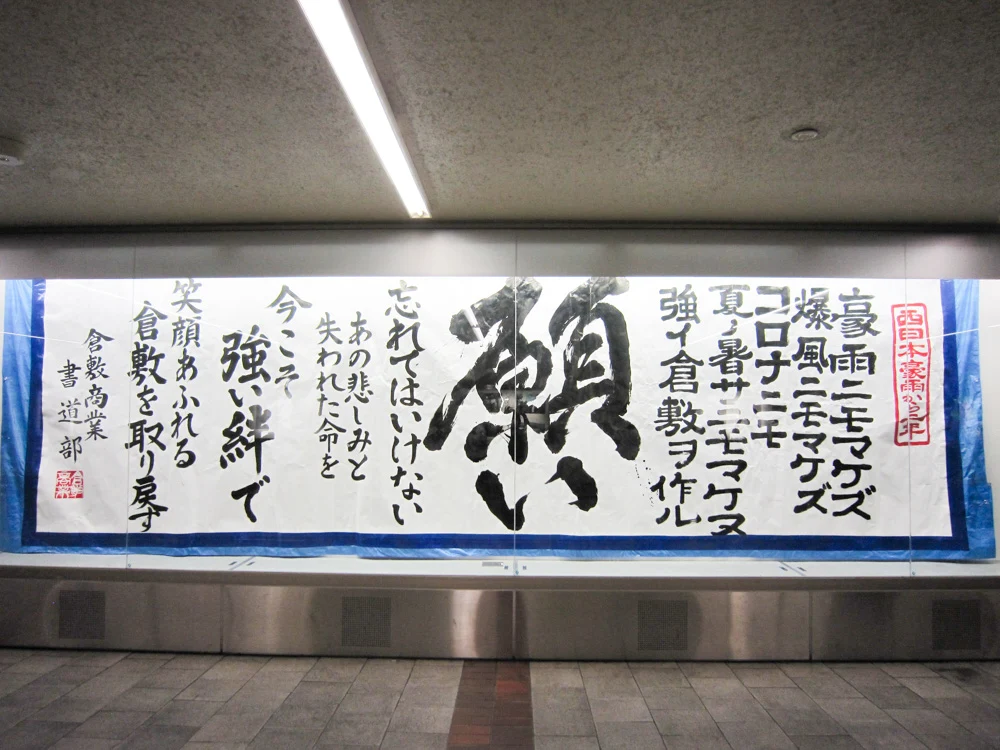 西日本豪雨から三年
豪雨ニモマケズ
爆風ニモマケズ
コロナニモ
夏ノ暑サニモマケヌ
強イ倉敷ヲ作ル
願い
忘れてはいけない
あの悲しみと
失われた命を
今こそ
強い絆で
笑顔あふれる
倉敷を取り戻す
倉敷商業
書道部